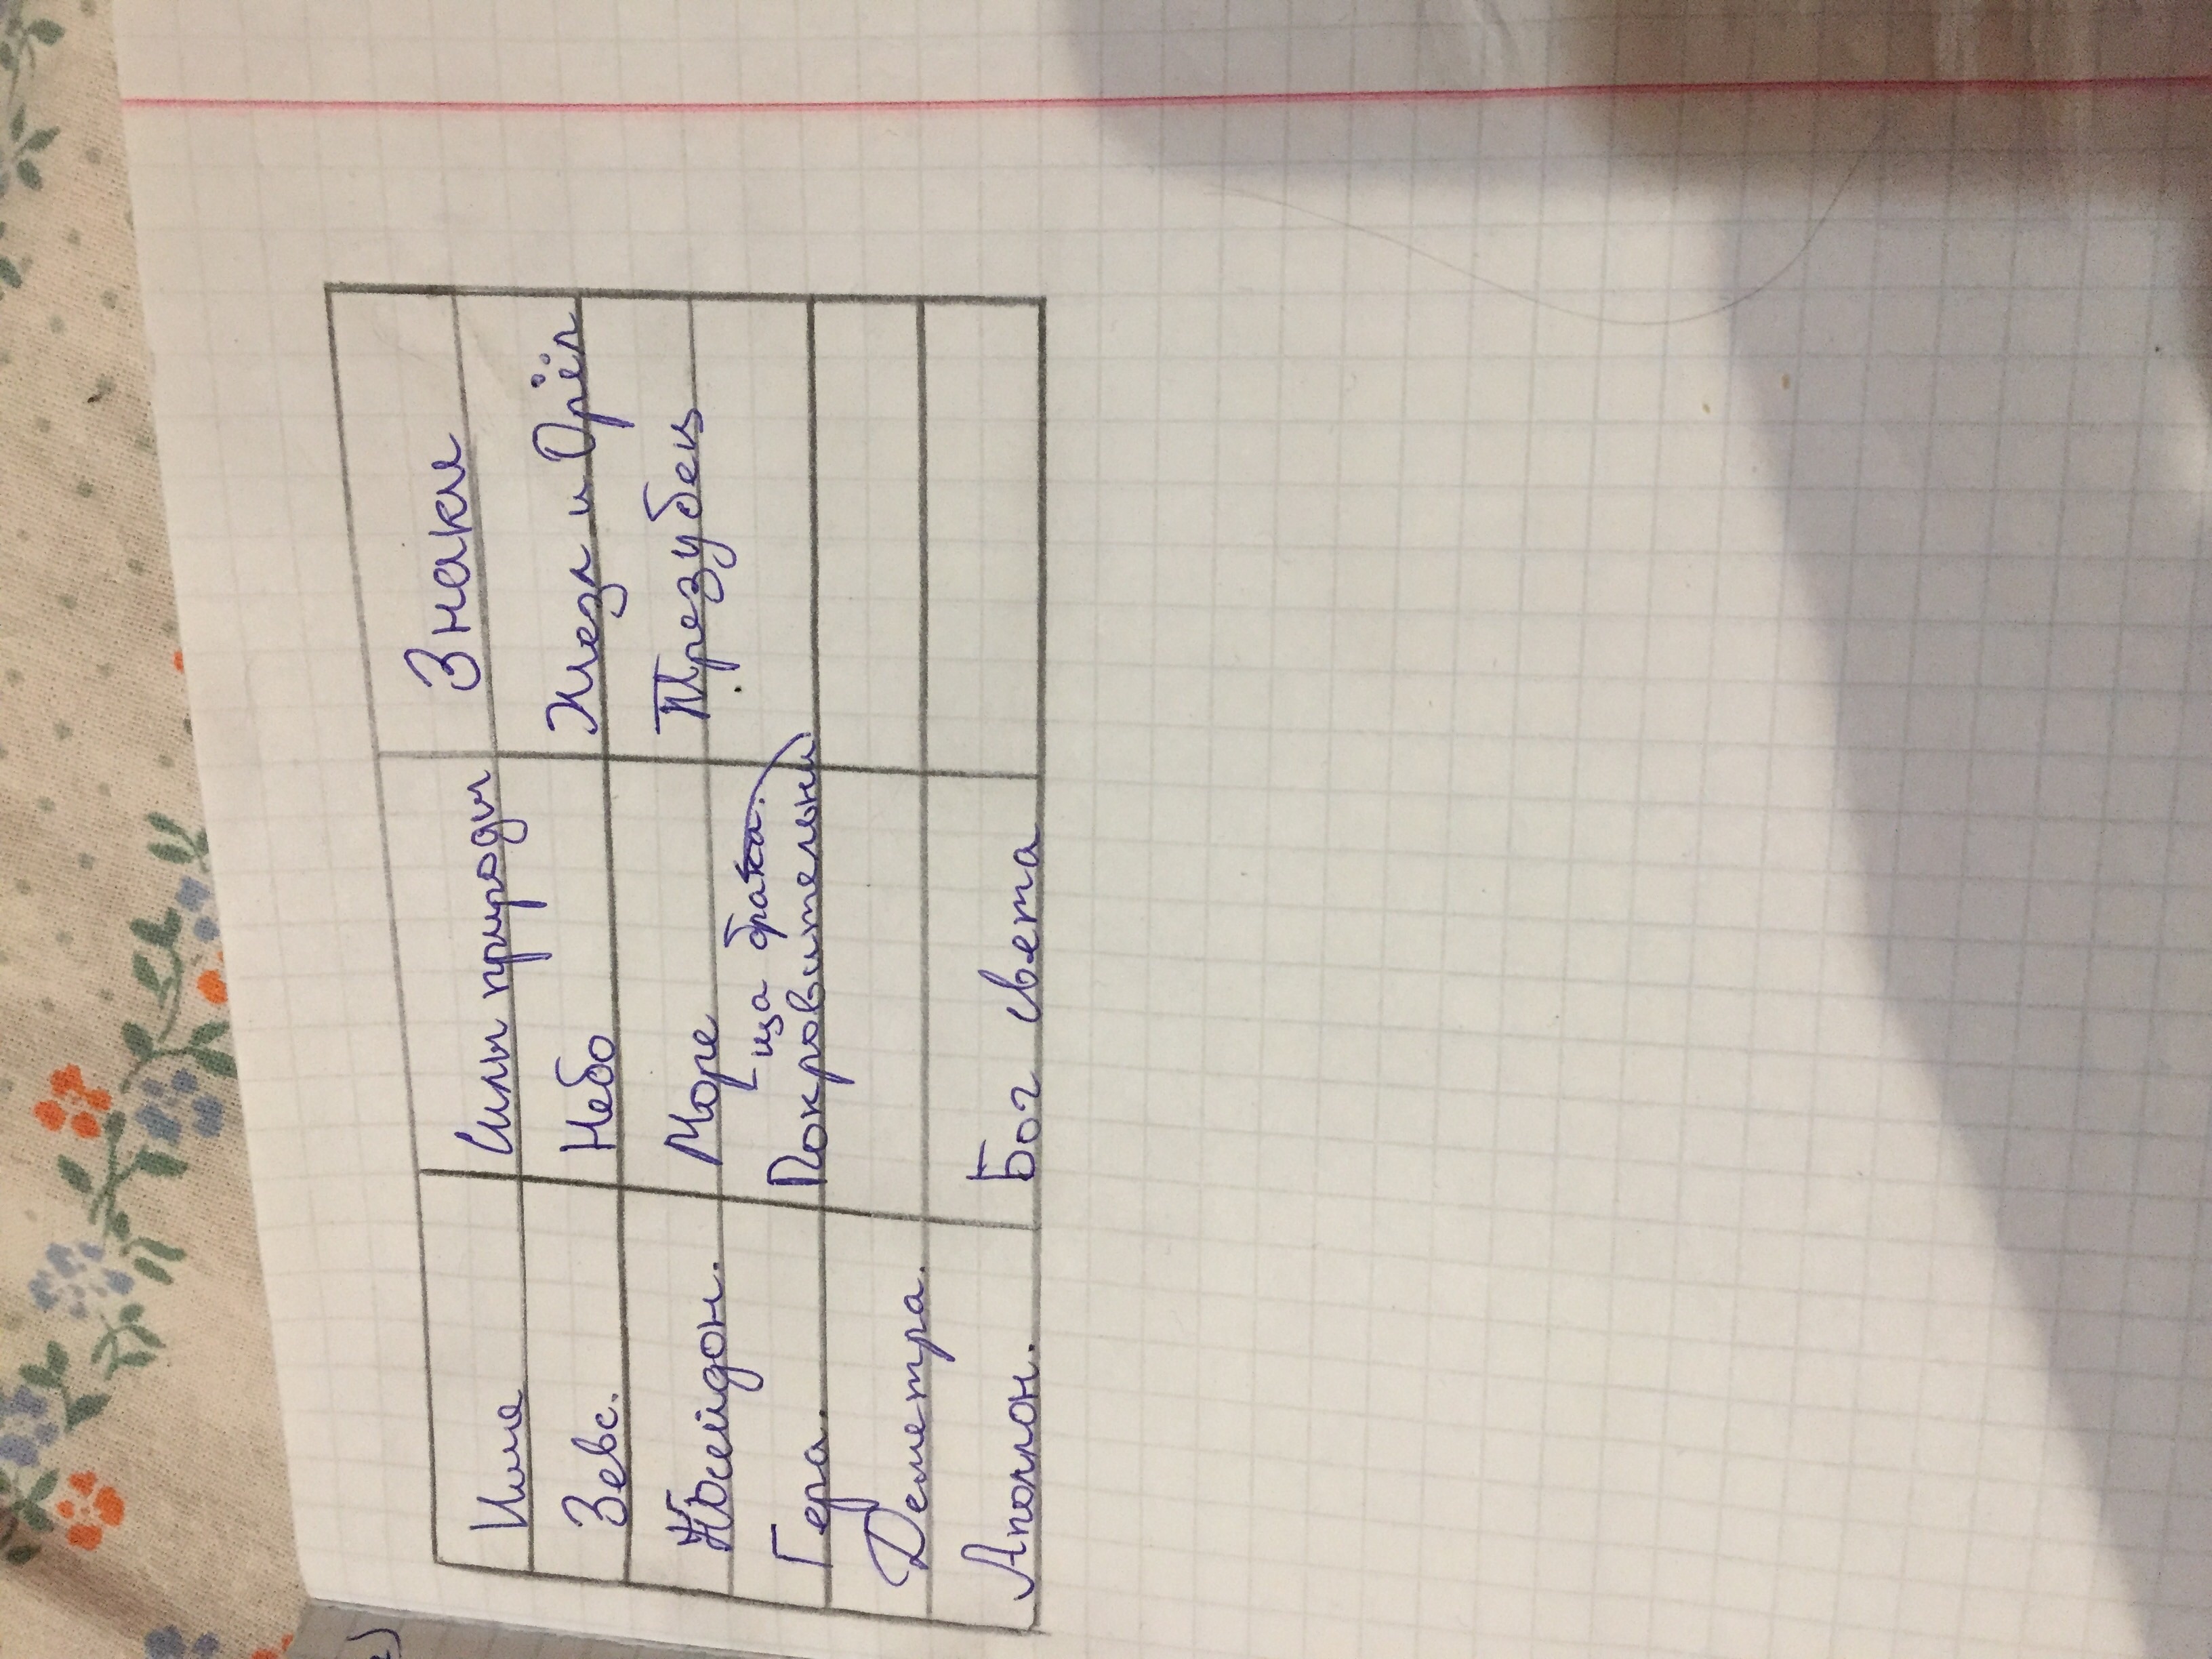 Имя Силы природы Знаки
Зевс. Небо Жезл и Орёл
Посейдон. Море Трезубец
ца брака.
Гера. Покровительни
Деметра.
Аполлон. Бог света